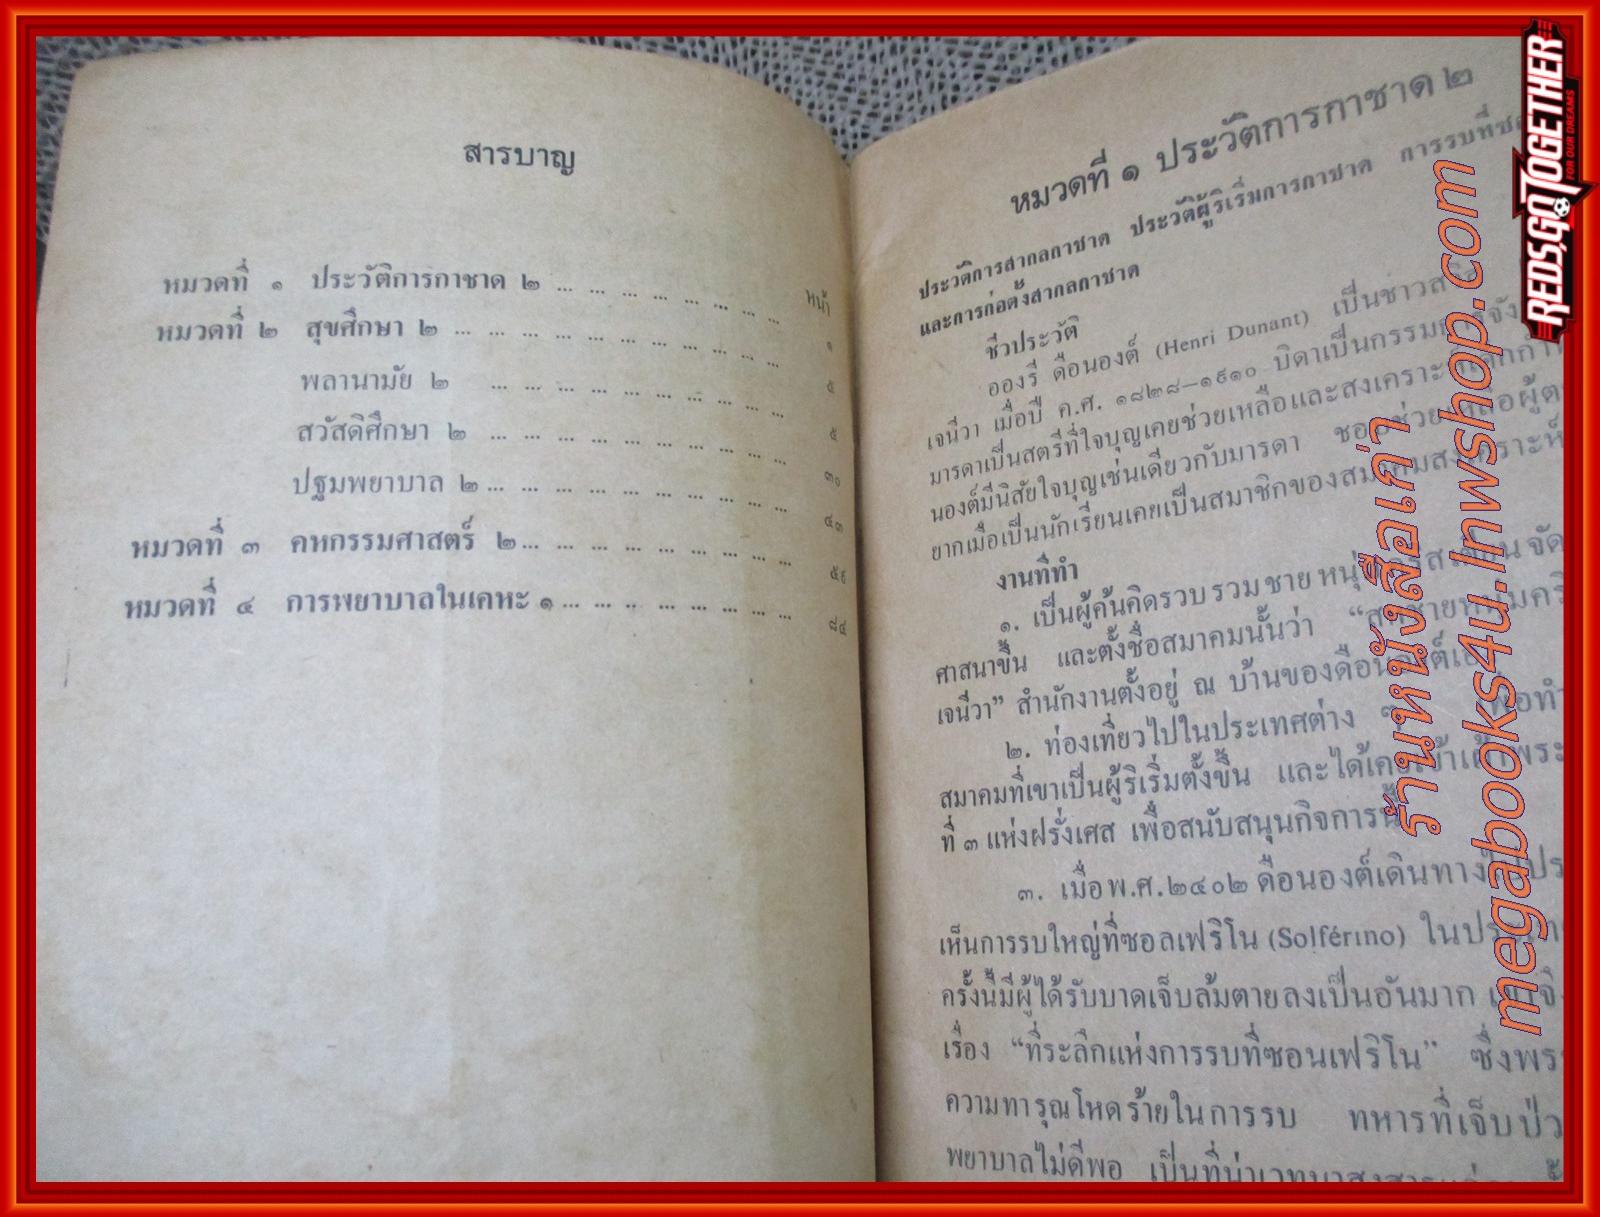 สารบาญ
หน้า
หมวดที่ ๑ ประวัติการกาชาด ๒ ... ... ... ... ... ... ... ... ๑
หมวดที่ ๒ สุขศึกษา ๒ ... ... ... ... ... ... ... ... ... ... ๕
พลานามัย ๒ ... ... ... ... ... ... ... ... ... ๕
สวัสดิศึกษา ๒ ... ... ... ... ... ... ... ... ... ๓๐
ปฐมพยาบาล ๒ ... ... ... ... ... ... ... ... ... ๔๓
หมวดที่ ๓ คหกรรมศาสตร์ ๒ ... ... ... ... ... ... ... ... ๕๙
หมวดที่ ๔ การพยาบาลในเคหะ ๑ ... ... .. ... ... ... ... ... ๘๔
หมวดที่ ๑ ประวัติการกาชาด ๒
ประวัติการสากลกาชาด ประวัติผู้ริเริ่มการกาชาด การรบที่
และการก่อตั้งสากลกาชาด
ชีวประวัติ
อองรี ดือนองต์ (Henri Dunant) เป็นชาว
เจนีวา เมื่อปี ค.ศ. ๑๘๒๘–๑๙๑๐ บิดาเป็นกรรมการ
มารดาเป็นสตรีที่ใจบุญเคยช่วยเหลือและสงเคราะห์
นองต์มีนิสัยใจบุญเช่นเดียวกับมารดา ชอบช่วยเหลือผู้
ยากเมื่อเป็นนักเรียนเคยเป็นสมาชิกของสมาคมสงเคราะห์
งานที่ทำ
๑. เป็นผู้ค้นคิดรวบรวมชายหนุ่ม จัด
ศาสนาขึ้น และตั้งชื่อสมาคมนั้นว่า
เจนีวา” สำนักงานตั้งอยู่ ณ บ้านของดือนองต์เอง
๒. ท่องเที่ยวไปในประเทศต่าง ๆ เพื่อทำ
สมาคมที่เขาเป็นผู้ริเริ่มตั้งขึ้น และได้เคยเข้าเฝ้าพระ
ที่ ๓ แห่งฝรั่งเศส เพื่อสนับสนุนกิจการนี้
๓. เมื่อพ.ศ.๒๔๐๒ ดือนองต์เดินทาง
เห็นการรบใหญ่ที่ซอลเฟริโน (Solférino) ในประเทศ
ครั้งนี้มีผู้ได้รับบาดเจ็บล้มตายลงเป็นอันมาก เขาจึง
เรื่อง “ที่ระลึกแห่งการรบที่ซอนเฟริโน” ซึ่ง
ความทารุณโหดร้ายในการรบ ทหารที่เจ็บป่วย
พยาบาลไม่ดีพอ เป็นที่น่าเวทนาสงสาร
ร้านหนังสือเก่า
megabooks4u.lnwshop.com
REDSGOTOGETHER
FOR OUR DREAMS